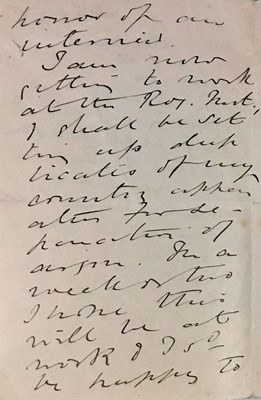 honor of an
interview.
I am now
getting to work
at the Roy. Inst.,
I shall be set
ting up dup
licates of my
country appar
atus for se-
paration of
argon. In a
week or two
I hope this
will be at
work & I sd
be happy to